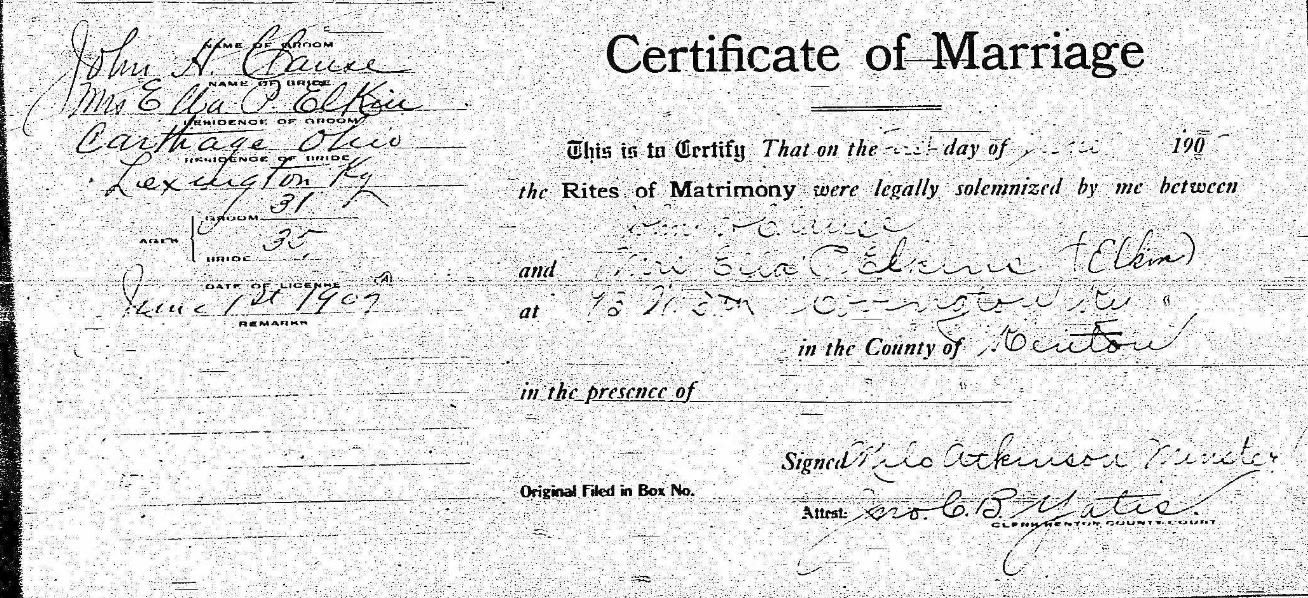 NAME OF GROOM
John H. Clause
NAME OF BRIDE
Mrs Ella P. Elkin
RESIDENCE OF GROOM
Carthage Ohio
RESIDENCE OF BRIDE
Lexington Ky
31
GROOM
AGES
35
BRIDE
DATE OF LICENSE
June 1st 1907
REMARKS
Certificate of Marriage
This is to Certify That on the day of 190
the Rites of Matrimony were legally solemnized by me between
Clause
and Mrs Ella Elkins (Elkin)
at Covington Ky
in the County of Kenton
in the presence of
Signed Milo Atkinson Minister
Original Filed in Box No.
Attest: Jno. C. B. Yates.
CLERK KENTON COUNTY COURT